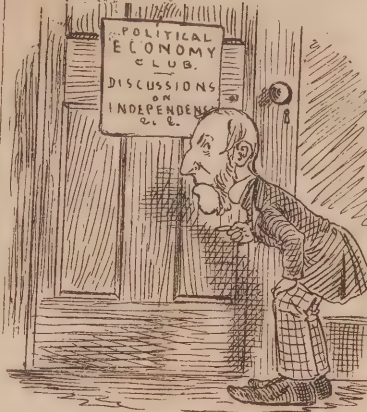 POLITICAL
ECONOMY
CLUB.
DISCUSSIONS
ON
INDEPENDENS
&. &.